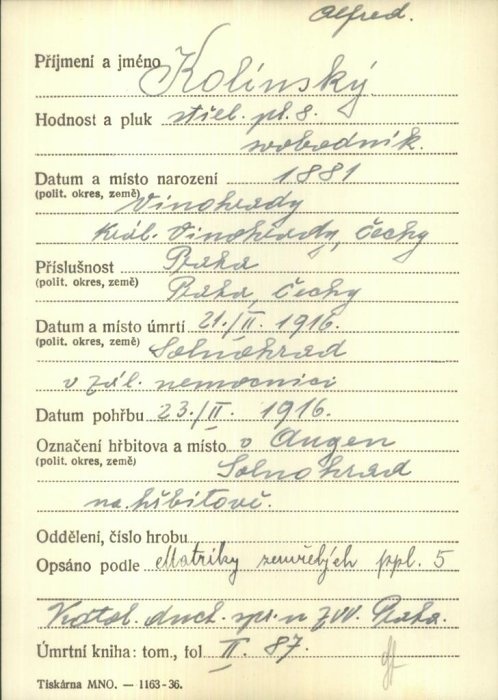 Alfred.
Příjmení a jméno Kolínský
Hodnost a pluk střel. pl. 8.
svobodník.
Datum a místo narození 1881
(polit. okres, země) Vinohrady
Král. Vinohrady, Čechy
Příslušnost Praha
(polit. okres, země) Praha, Čechy
Datum a místo úmrtí 21./II. 1916.
(polit. okres, země) Solnohrad
v zál. nemocnici
Datum pohřbu 23./II. 1916.
Označení hřbitova a místo v Augen
(polit. okres, země) Solnohrad
na hřbitově.
Oddělení, číslo hrobu
Opsáno podle Matriky zemřelých ppl. 5
Katol. duch. spr. u ZVV. Praha.
Úmrtní kniha: tom., fol II. 87.
Tiskárna MNO. — 1163-36.